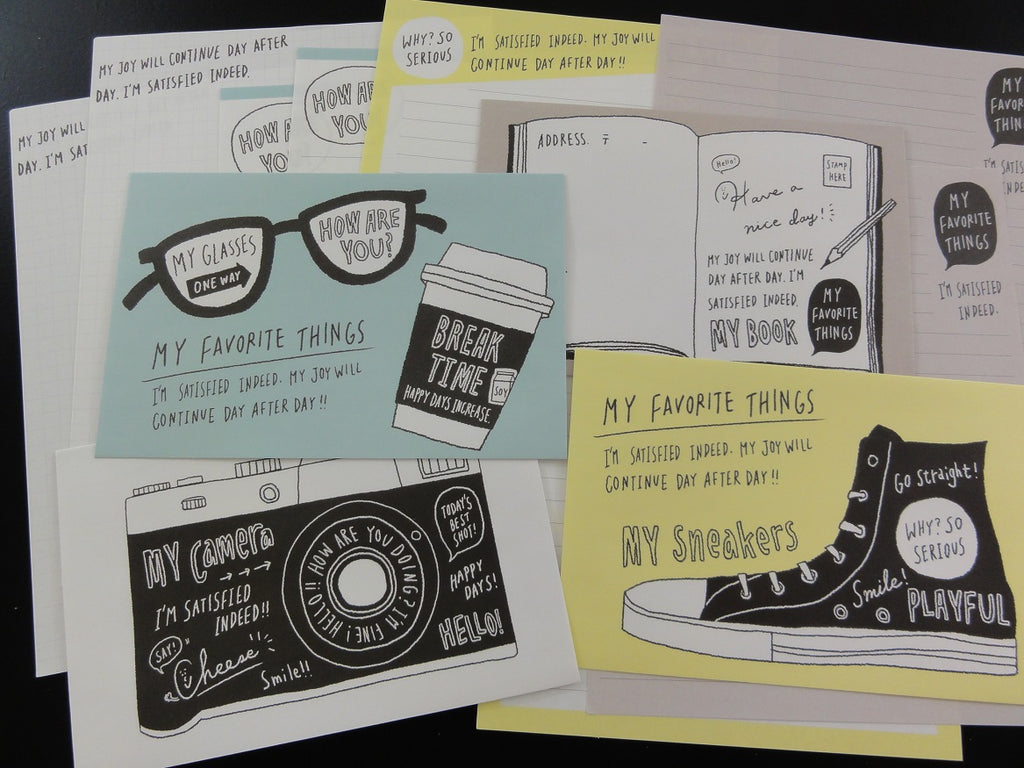 MY JOY WILL CONTINUE DAY AFTER
DAY. I'M SATISFIED INDEED.
MY JOY WILL
DAY. I'M SAT
HOW
YO
HOW
YOU
WHY? SO
SERIOUS
I'M SATISFIED INDEED. MY JOY WILL
CONTINUE DAY AFTER DAY!!
MY
FAVORITE
THIN
I'M SATIS
MY
FAVORITE
THINGS
I'M SATISFIED
INDEED.
ADDRESS. 〒 -
Hello!
STAMP
HERE
Have a
nice day!
MY JOY WILL CONTINUE
DAY AFTER DAY. I'M
SATISFIED INDEED.
MY BOOK
MY
FAVORITE
THINGS
MY GLASSES
ONE WAY
HOW ARE
YOU?
MY FAVORITE THINGS
I'M SATISFIED INDEED. MY JOY WILL
CONTINUE DAY AFTER DAY!!
BREAK
TIME
SOY
HAPPY DAYS INCREASE.
MY FAVORITE THINGS
I'M SATISFIED INDEED. MY JOY WILL
CONTINUE DAY AFTER DAY!!
MY Sneakers
Go Straight!
WHY? SO
SERIOUS
Smile!
PLAYFUL
MY Camera
I'M SATISFIED
INDEED!!
SAY!
Cheese
Smile!!
HOW ARE YOU DOING? I'M FINE! HELLO!!
TODAY'S
BEST
SHOT!
HAPPY
DAYS!
HELLO!